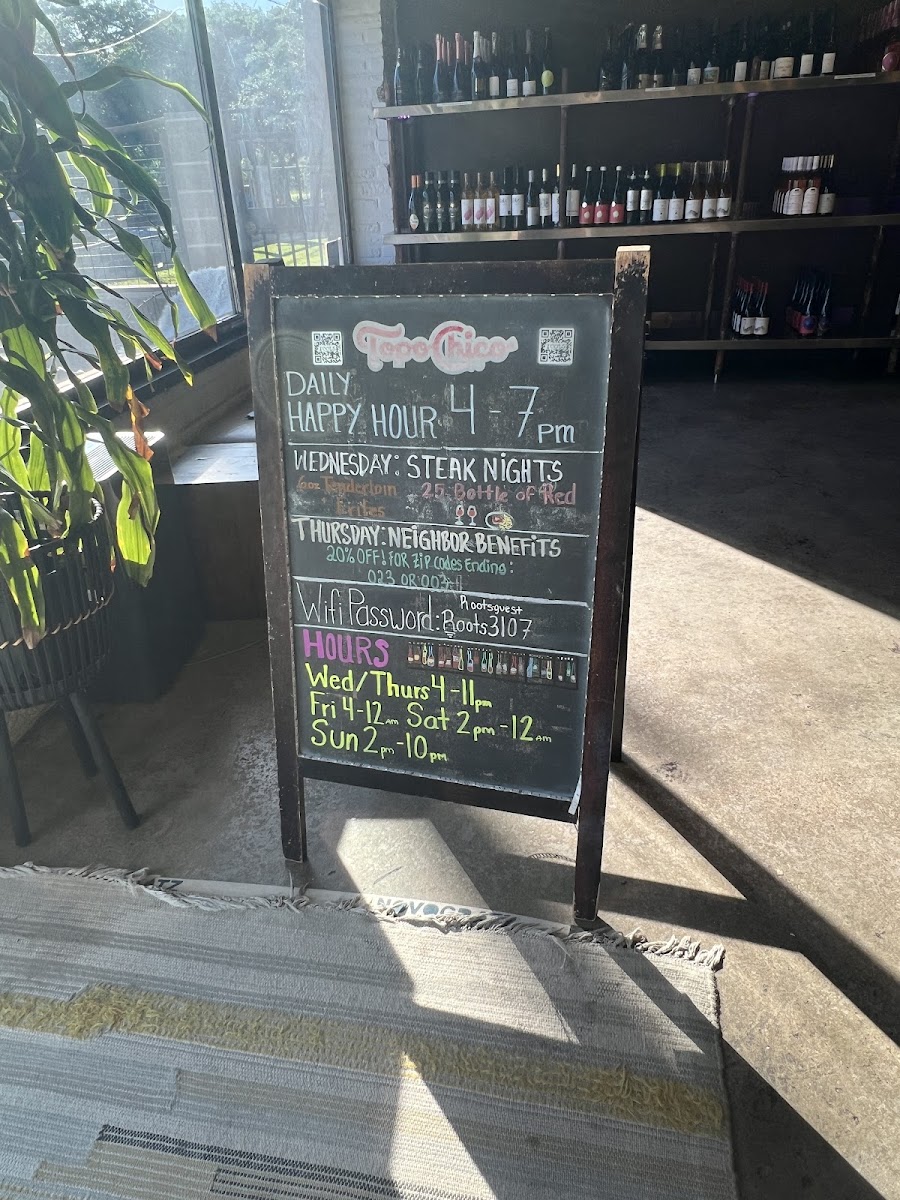 Topo Chico
DAILY
HAPPY HOUR 4-7pm
WEDNESDAY: STEAK NIGHTS
6oz Tenderloin 25 Bottle of Red
Frites
THURSDAY: NEIGHBOR BENEFITS
20% OFF! FOR ZIP CODES ENDING:
023 OR 007
Rootsguest
Wifi Password: Roots3107
HOURS
Wed/Thurs 4-11pm
Fri 4-12AM Sat 2pm-12AM
Sun 2pm-10pm